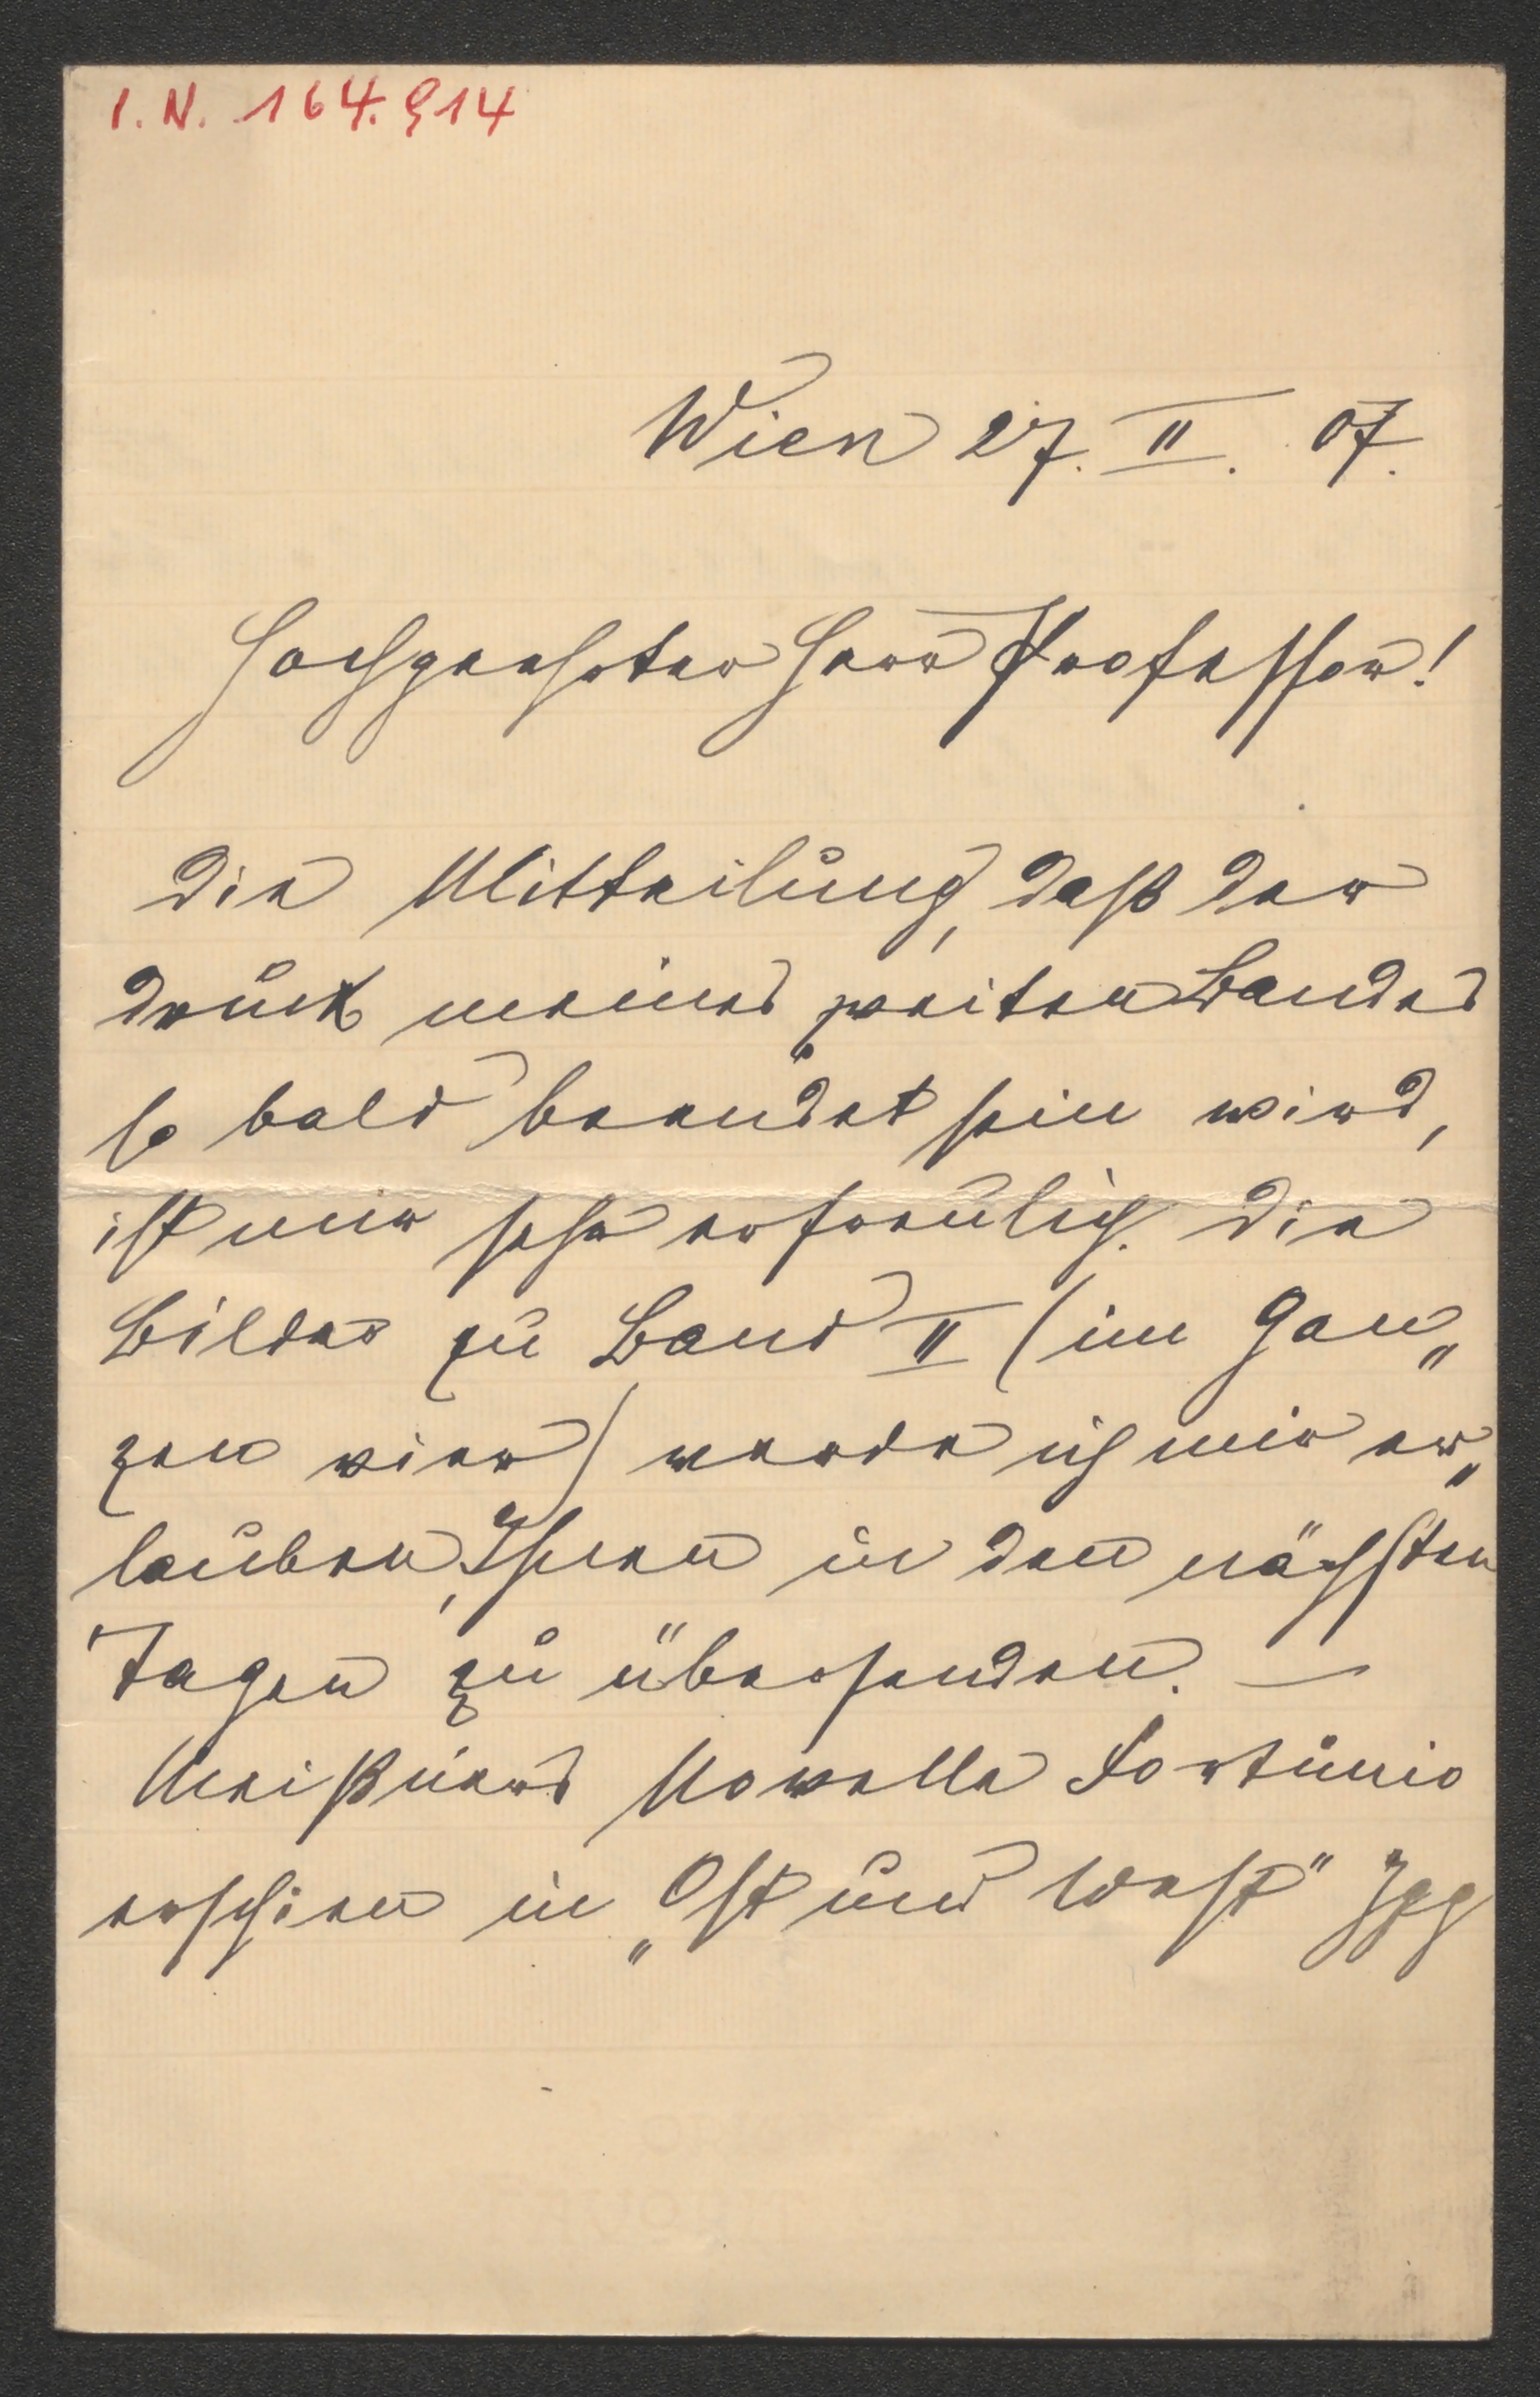 I. N. 164.914
Wien 27. II. 07.
Hochgeehrter Herr Professor!
Die Mitteilung, daß der
Druck meines zweiten Bandes
so bald beendet sein wird,
ist mir sehr erfreulich. Die
Bilder zu Band II (im Gan„
zen vier) werde ich mir er„
lauben, Ihnen in den nächsten
Tagen zu übersenden. —
Meißners Novelle Fortunio
erschien in „Ost und West"